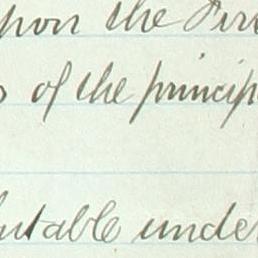 upon the Fir
of the princip
utable under